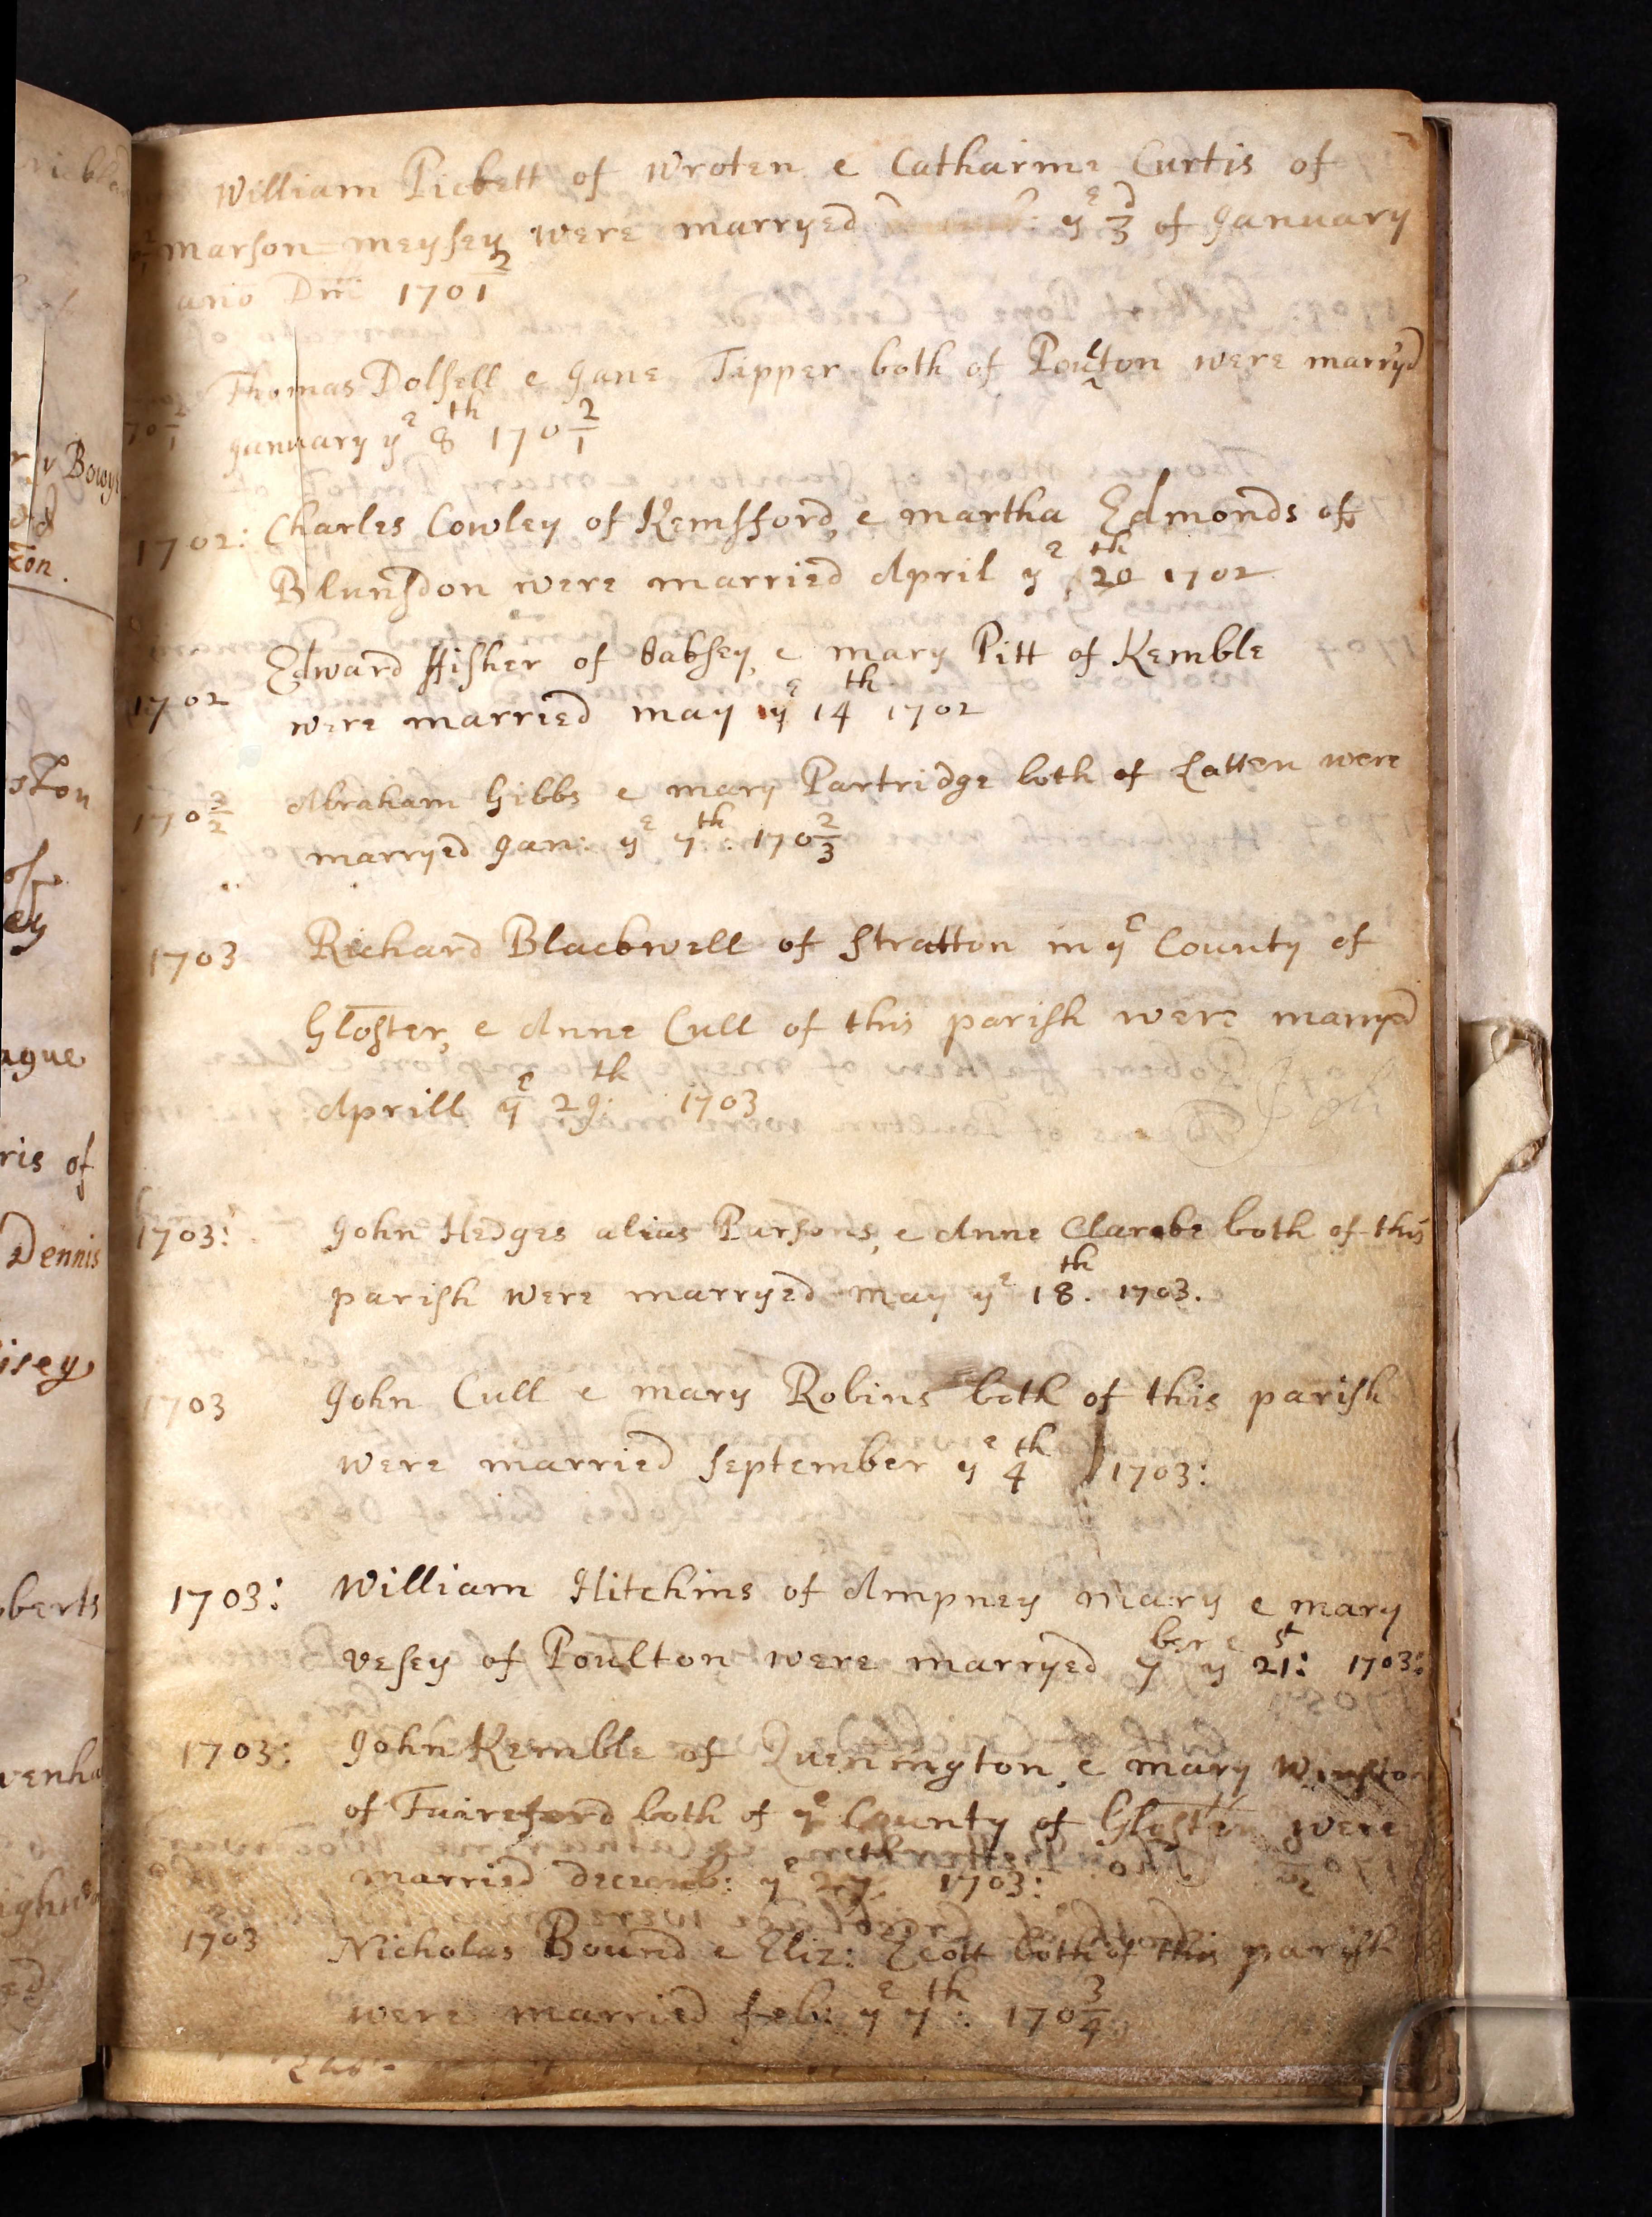 William Pickett of Wroten e Catharine Curtis of
marson=meysey were marryed : yᵉ 3ᵈ of January
ano Dni 170 2/1
Thomas Dolsell e Jane Tipper both of Poulton were marryd
70 2/1 January yᵉ 8ᵗʰ 170 2/1
1702: Charles Cowley of Kemsford, e martha Edmonds of
Blunsdon were married April yᵉ 20ᵗʰ 1702
Edward ffisher of Oaksey, e mary Pitt of Kemble
1702 were married may yᵉ 14ᵗʰ 1702
170 3/2 Abraham Gibbs e mary Partridge both of Latten were
marryed Jan: yᵉ 7ᵗʰ: 170 2/3
1703 Richard Blackwell of Stratton in yᵉ County of
Gloster, e Anne Cull of this parish were marryed
Aprill yᵉ 29ᵗʰ: 1703
1703: John Hedges alias Parsons, e Anne Clarke both of this
parish were marryed may yᵉ 18ᵗʰ. 1703.
1703 John Cull e mary Robins both of this parish
were married September yᵉ 4ᵗʰ 1703:
1703: William Hitchins of Ampney mary e mary
vesey of Poulton were marryed 7ᵇᵉʳ yᵉ 21ˢᵗ: 1703:
1703: John Kemble of Quenington, e mary
of Faireford both of yᵉ County of Gloster were
married decemb: yᵉ 27ᵗʰ 1703:
1703 Nicholas Bound e Eliz: Scott both of this parish
were married feb: yᵉ 7ᵗʰ: 170 3/4